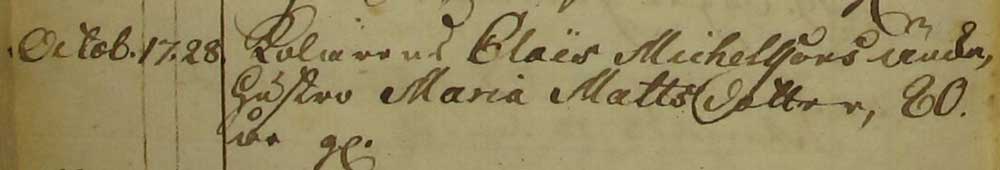 Octob. 17. 28. Kolarens Claës Michelssons äncka,
Hustro Maria Matts dotter, 80.
åhr gl.